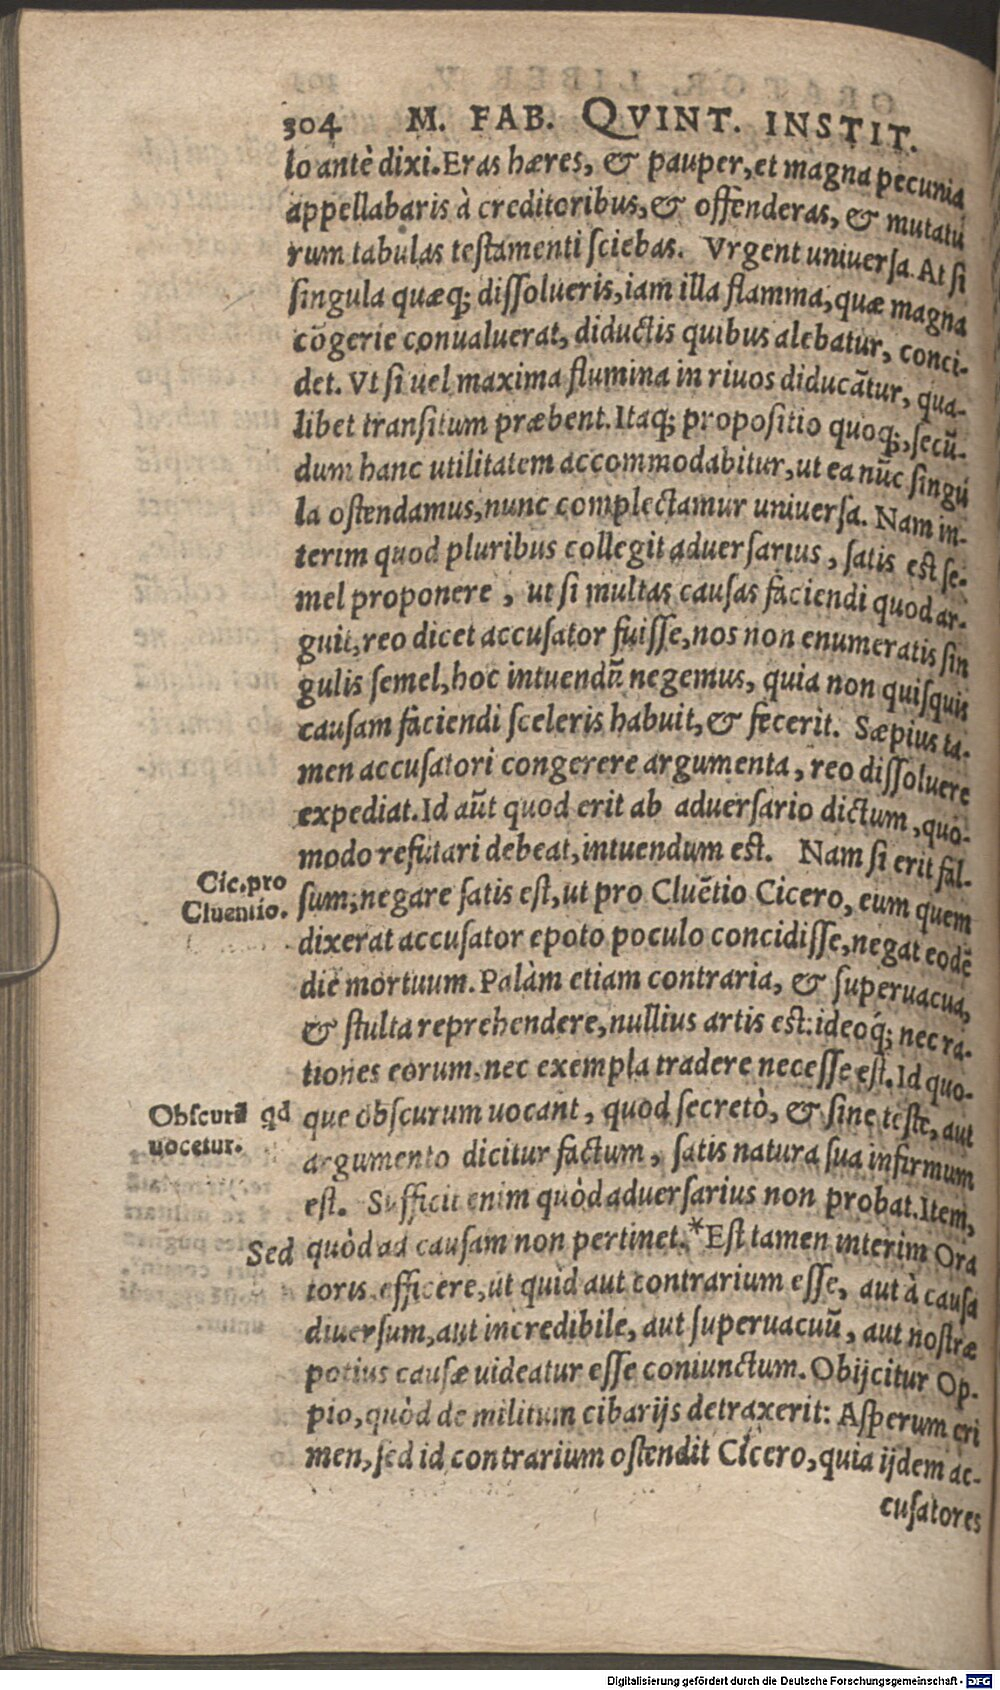 304 M. FAB. QVINT. INSTIT.
lo antè dixi. Eras hæres, & pauper, et magna pecunia
appellabaris à creditoribus, & offenderas, & mutatu
rum tabulas testamenti sciebas. Vrgent uniuersa. At si
singula quæq; dissolueris, iam illa flamma, quæ magna
cōgerie conualuerat, diductis quibus alebatur, conci-
det. Vt si uel maxima flumina in riuos diducātur, qua-
libet transitum præbent. Itaq; propositio quoq;, secū-
dum hanc utilitatem accommodabitur, ut ea nūc singu
la ostendamus, nunc complectamur uniuersa. Nam in-
terim quod pluribus collegit aduersarius, satis est se-
mel proponere, ut si multas causas faciendi quod ar-
guit, reo dicet accusator fuisse, nos non enumeratis sin
gulis semel, hoc intuendū negemus, quia non quisquis
causam faciendi sceleris habuit, & fecerit. Sæpius ta-
men accusatori congerere argumenta, reo dissoluere
expediat. Id aūt quod erit ab aduersario dictum, quo-
modo refutari debeat, intuendum est. Nam si erit fal-
Cic. pro
Cluentio.
sum, negare satis est, ut pro Cluētio Cicero, eum quem
dixerat accusator epoto poculo concidisse, negat eodē
die mortuum. Palàm etiam contraria, & superuacua,
& stulta reprehendere, nullius artis est: ideoq́; nec ra-
tiones eorum, nec exempla tradere necesse est. Id quo-
Obscurū qd
uocetur.
que obscurum uocant, quod secretò, & sine teste, aut
argumento dicitur factum, satis natura sua infirmum
est. Sufficit enim quòd aduersarius non probat. Item,
Sed
quòd ad causam non pertinet.*Est tamen interim Ora
toris efficere, ut quid aut contrarium esse, aut à causa
diuersum, aut incredibile, aut superuacuū, aut nostræ
potius causæ uideatur esse coniunctum. Obijcitur Op-
pio, quòd de militum cibarijs detraxerit: Asperum cri
men, sed id contrarium ostendit Cicero, quia ijdem ac-
cusatores
Digitalisierung gefördert durch die Deutsche Forschungsgemeinschaft - DFG